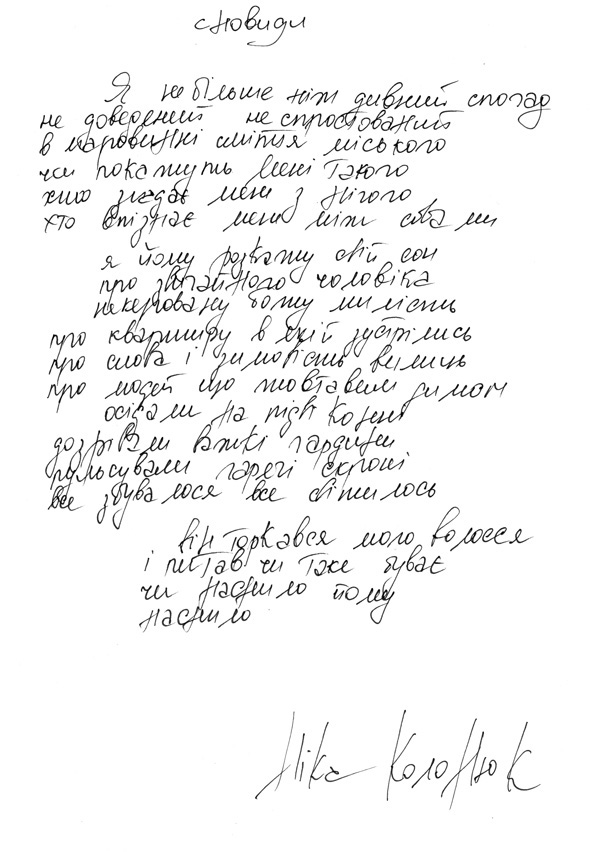 сновиди
Я не більше ніж дивний спогад
не доведений не спростований
в маровинні сміття міського
чи покажуть мені такого
хто згадає мене з нічого
хто впізнає мене між собами
я йому розкажу свій сон
про звичайного чоловіка
некеровану божу милість
про квартиру в якій зустрілись
про слова і зимовість вилиць
про людей що жовтавим димом
осідали на підвіконні
дозрівали важкі гардини
пульсували гарячі скроні
все збувалося все світилось
він торкався мого волосся
і питав чи таке буває
чи наснило йому
наснило
Ніка Колонюк